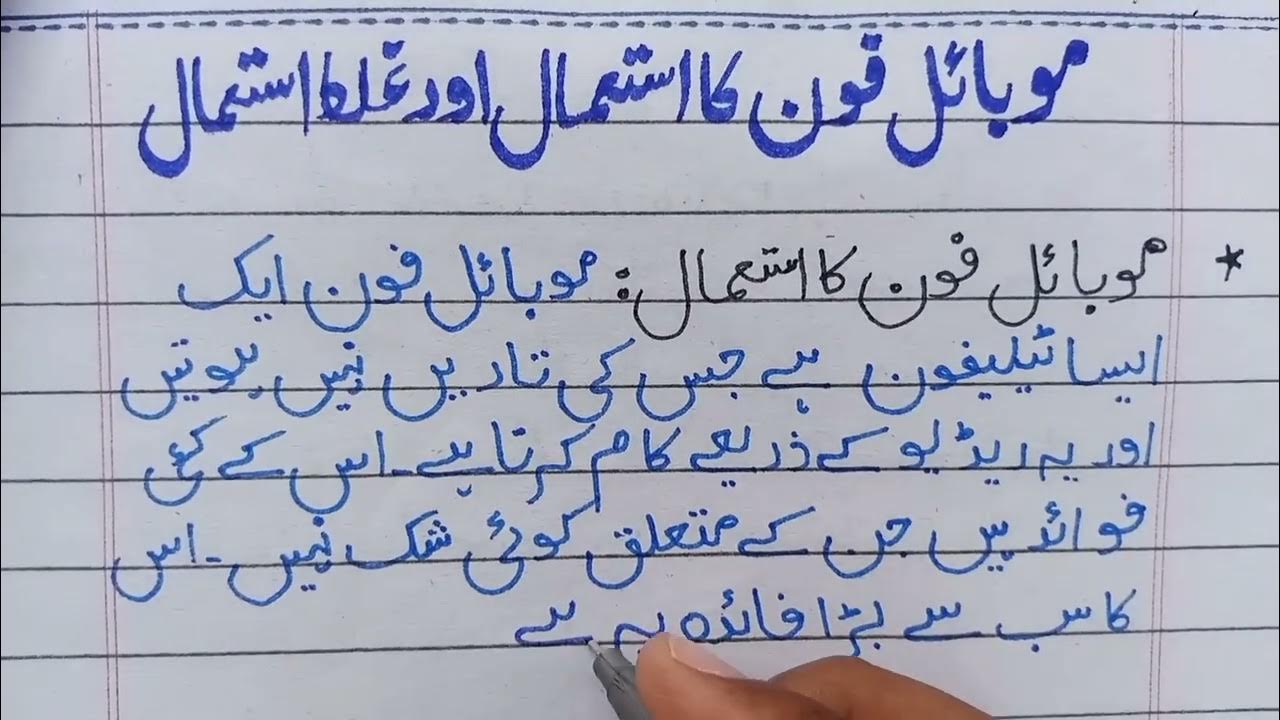 موبائل فون کا استعمال اور غلط استعمال
* موبائل فون کا استعمال: موبائل فون ایک
ایسا ٹیلیفون ہے جس کی تاریں نہیں ہوتیں
اور یہ ریڈیو کے ذریعے کام کرتا ہے۔ اس کے کئی
فوائد ہیں جن کے متعلق کوئی شک نہیں۔ اس
کا سب سے بڑا فائدہ یہ ہے